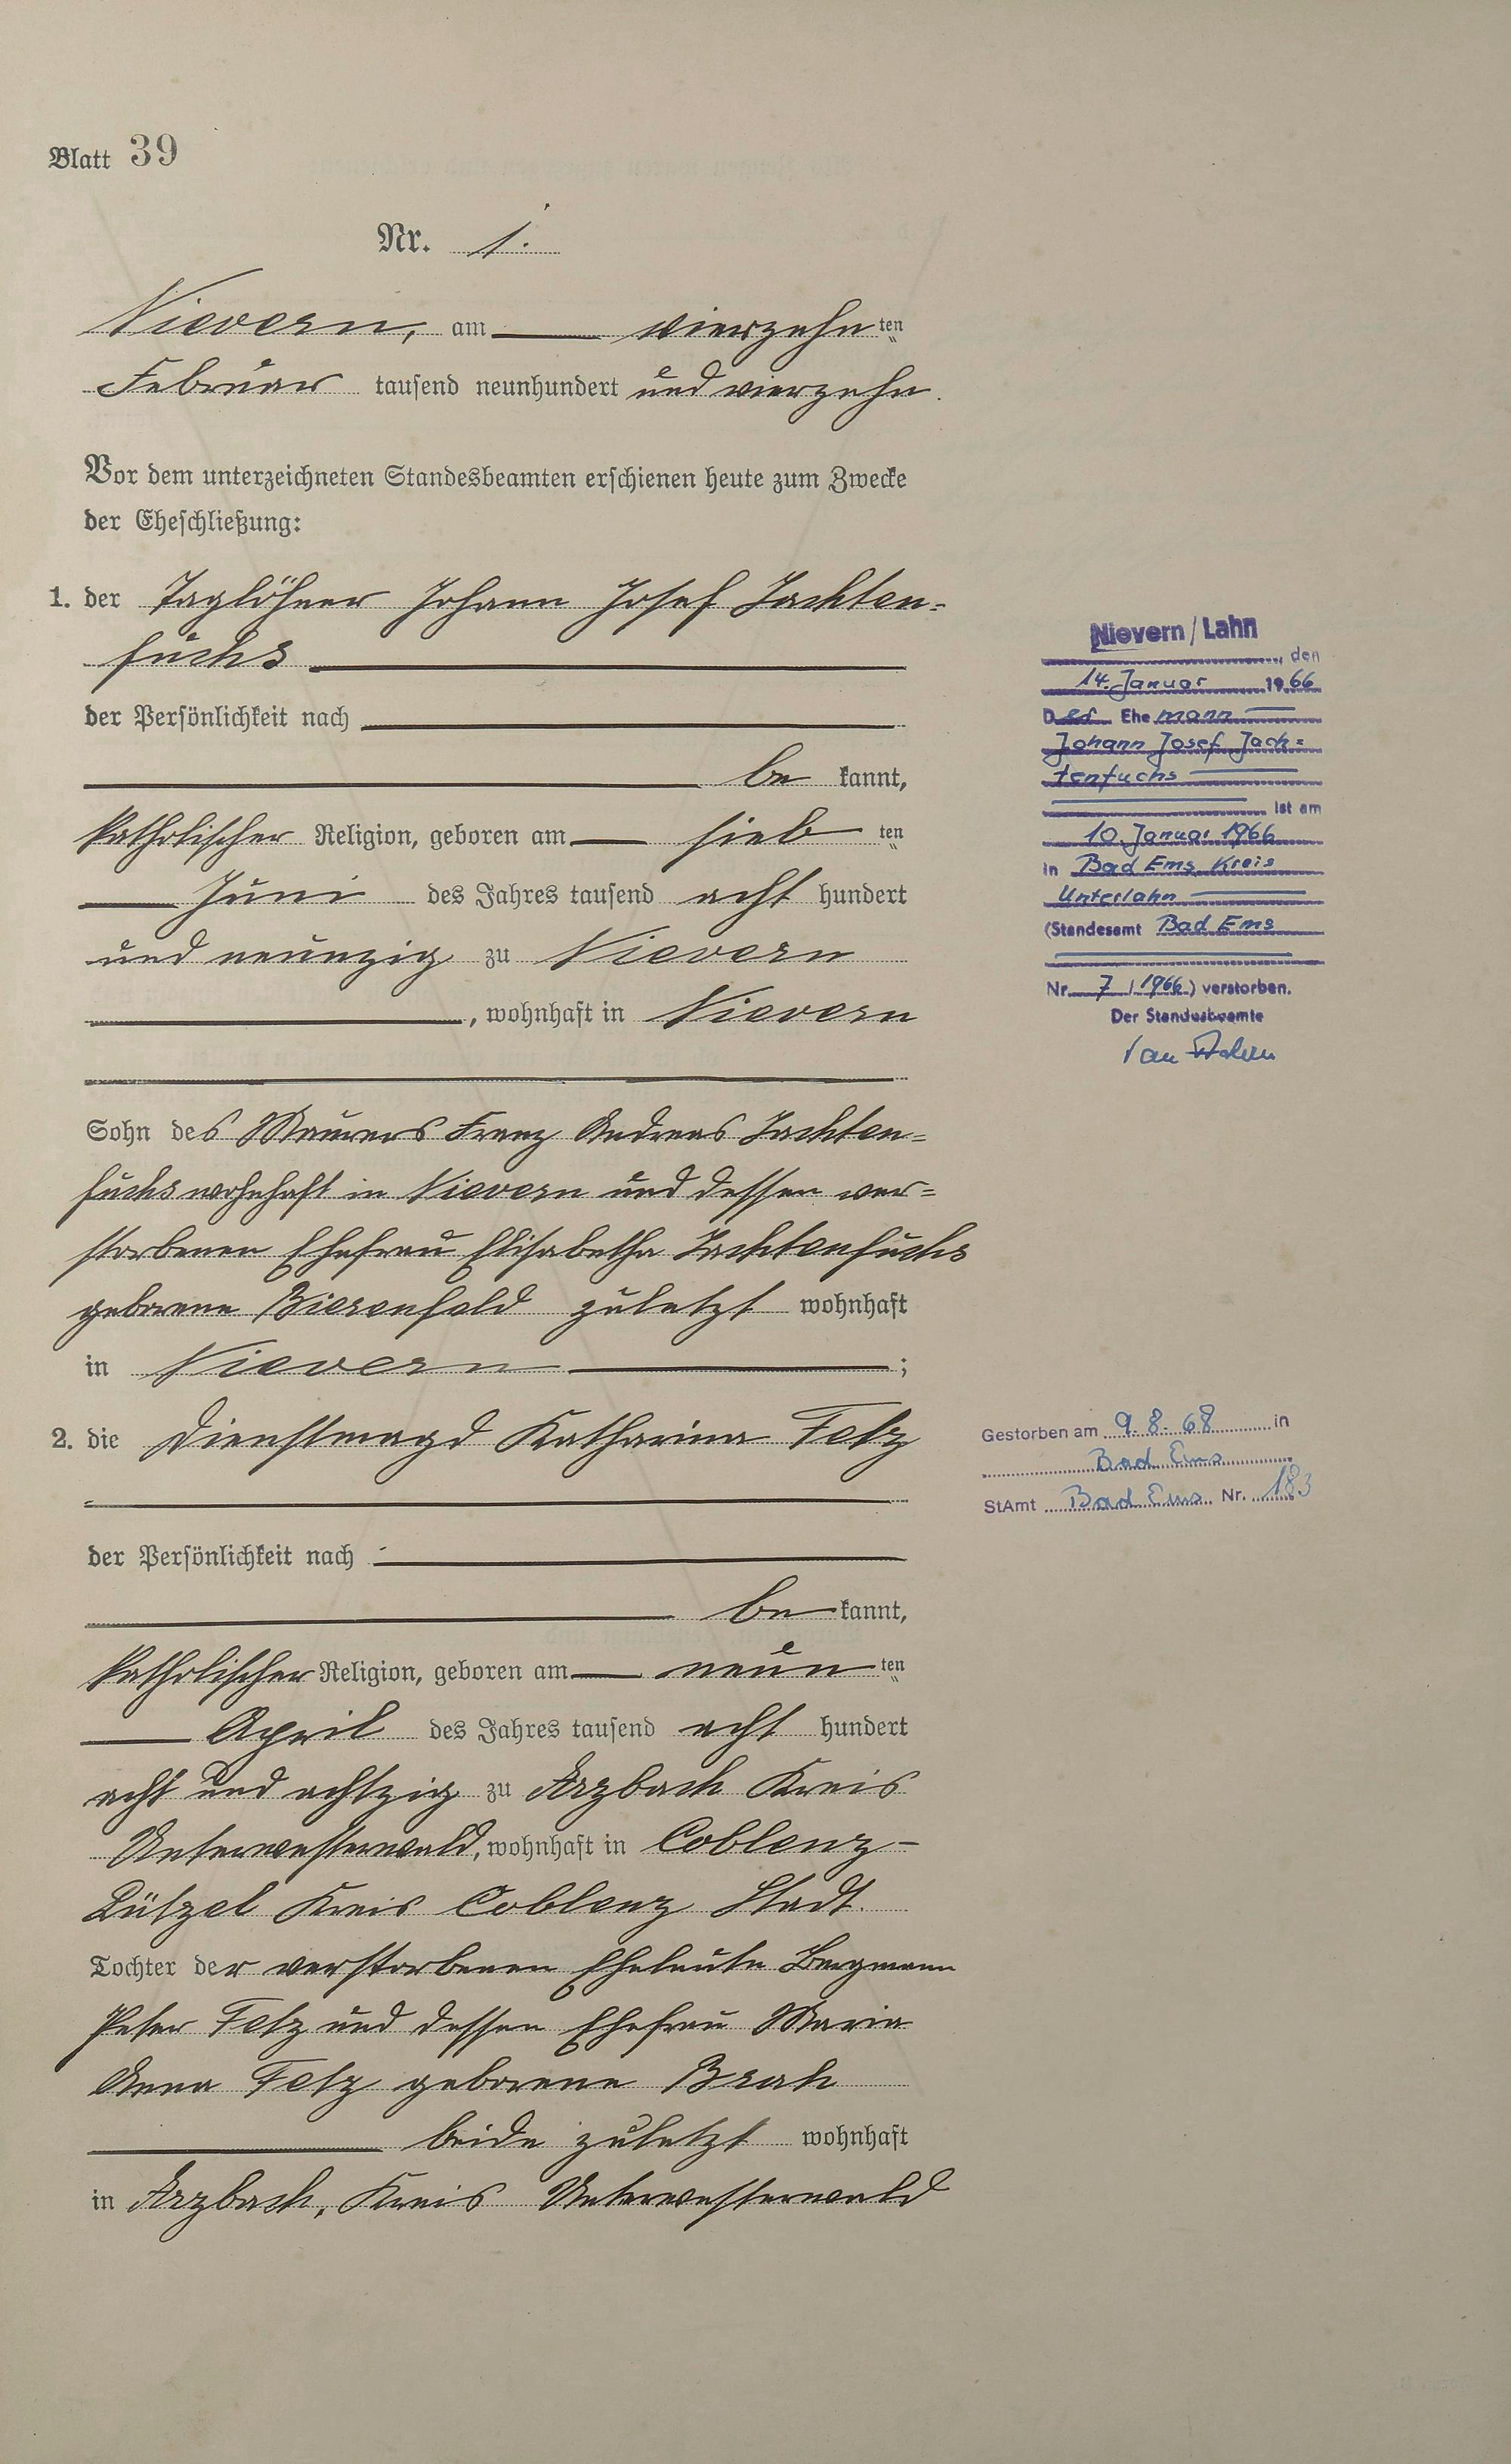 Blatt 39
Nr. 1.
Nievern, am vierzehn ten
Februar tausend neunhundert und vierzehn.
Vor dem unterzeichneten Standesbeamten erschienen heute zum Zwecke
der Eheschließung:
1. der Taglöhner Johann Josef Jachten-
fuchs
der Persönlichkeit nach
be kannt,
katholischer Religion, geboren am sieb ten
Juni des Jahres tausend acht hundert
und neunzig zu Nievern
, wohnhaft in Nievern
Sohn des Maurers Franz Andreas Jachten=
fuchs wohnhaft in Nievern und dessen ver=
storbenen Ehefrau Elisabetha Jachtenfuchs
geborene Bierenfeld zuletzt wohnhaft
in Nievern ;
2. die Dienstmagd Katharina Fetz
der Persönlichkeit nach
be kannt,
katholischer Religion, geboren am neun ten
April des Jahres tausend acht hundert
acht und achtzig zu Arzbach Kreis
Unterwesterwald, wohnhaft in Coblenz-
Lützel Kreis Coblenz Stadt.
Tochter der verstorbenen Eheleute Bergmann
Peter Fetz und dessen Ehefrau Maria
Anna Fetz geborene Brah
beide zuletzt wohnhaft
in Arzbach, Kreis Unterwesterwald
Nievern/Lahn
, den
14. Januar 1966
Der Ehemann
Johann Josef Jach=
tenfuchs
ist am
10. Januar 1966
in Bad Ems, Kreis
Unterlahn
(Standesamt Bad Ems
Nr. 7 / 1966) verstorben.
Der Standesbeamte
Gestorben am 9.8.68 in
Bad Ems
StAmt Bad Ems Nr. 183